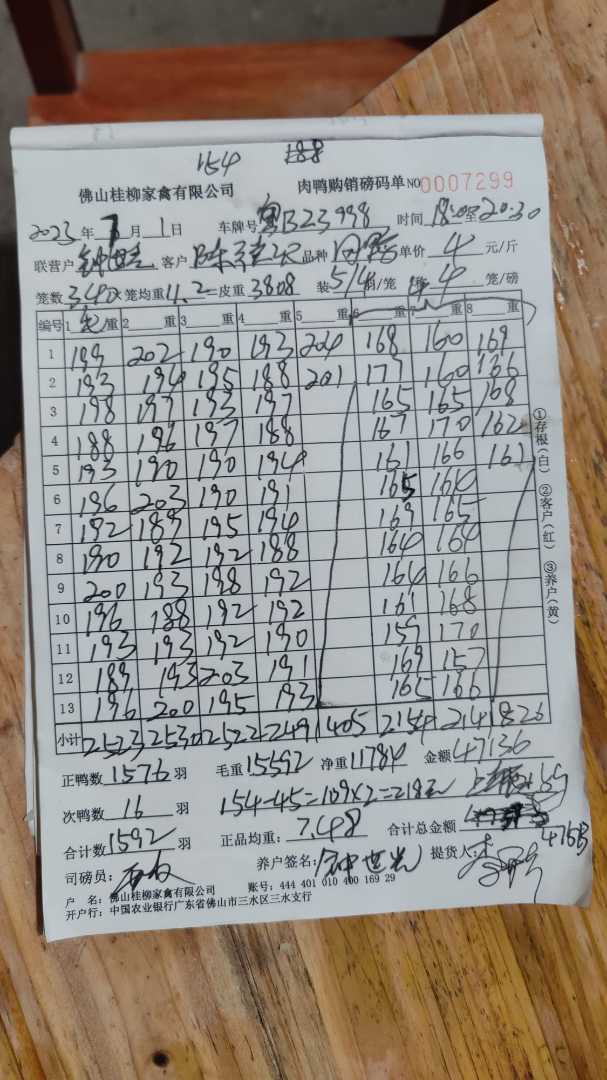 154 188
佛山桂柳家禽有限公司 肉鸭购销磅码单 NO 0007299
2023年 月1日 车牌号 粤B23998 时间 18:50至20:30
联营户 客户 品种 肉鸭 单价 4 元/斤
笼数 340×笼均重 11.2=皮重 3808 装 5/4 羽/笼 称 4 笼/磅
编号 1 重 2 重 3 重 4 重 5 重 6 重 7 重 8 重
1 199 202 190 193 204 168 160 169
2 193 194 195 188 201 177 160 166
3 198 197 193 197 165 165 168
4 188 196 197 188 167 170 162
5 193 190 190 194 161 166 161
6 196 203 190 191 165 164
7 192 189 195 194 169 165
8 190 192 192 188 164 164
9 200 193 198 192 164 166
10 196 188 192 192 161 168
11 193 193 192 190 159 170
12 189 193 203 191 169 157
13 196 200 195 193 165 166
小计 2523 2530 2522 2491 405 2154 2141 826
正鸭数 1576 羽 毛重 15592 净重 11784 金额 47136
次鸭数 16 羽 154-45=109×2=218元
合计数 1592 羽 正品均重: 7.48 合计总金额
司磅员: 养户签名: 钟世光 提货人:
户 名: 佛山桂柳家禽有限公司 账号: 444 401 010 400 169 29
开户行: 中国农业银行广东省佛山市三水区三水支行
①存根(白) ②客户(红) ③养户(黄)